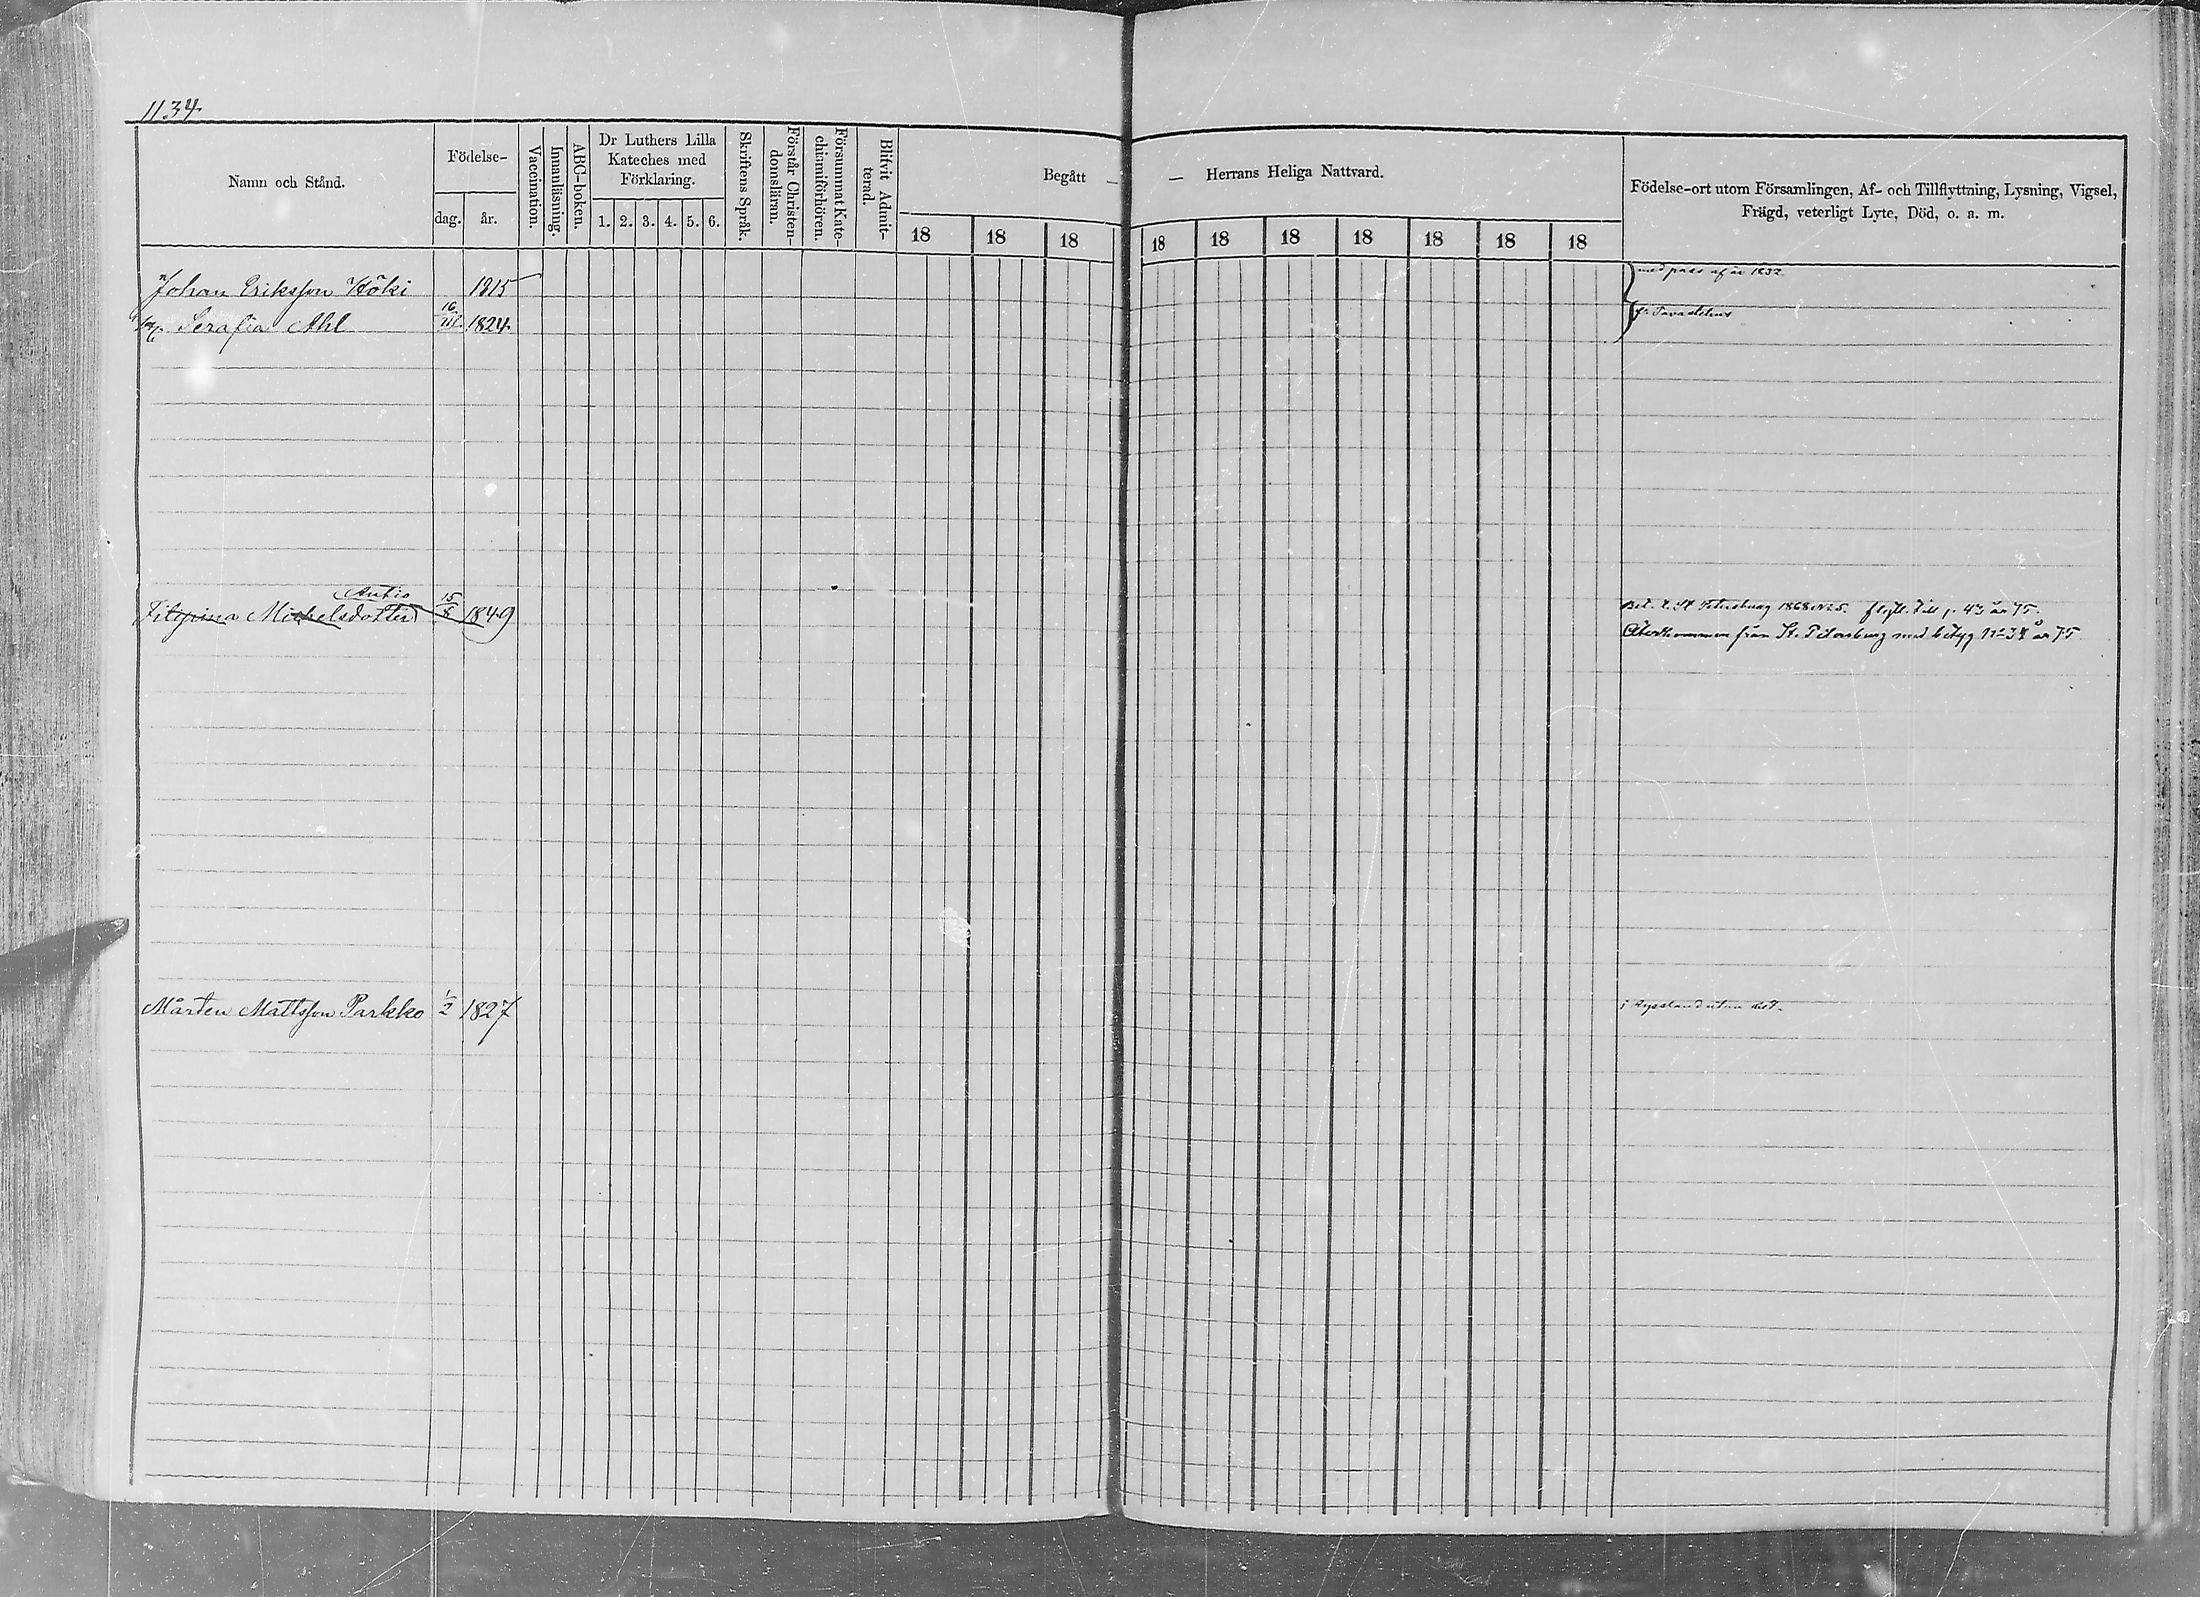 1134.
Namn och Stånd.
Födelse-
dag.
år.
Vaccination.
Innanläsning.
ABC-boken.
Dr Luthers Lilla
Kateches med
Förklaring.
1. 2. 3. 4. 5. 6.
Skriftens Språk.
Förstår Christen-
domsläran.
Försummat Kate-
chismiförhören.
Blifvit Admit-
terad.
Begått —
18 18 18
— Herrans Heliga Nattvard.
18 18 18 18 18 18 18
Födelse-ort utom Församlingen, Af- och Tillflyttning, Lysning, Vigsel,
Frägd, veterligt Lyte, Död, o. a. m.
Johan Eriksson Köki 1815 med pass af år 1832
Serafia Ahl 16/III 1824. fr. Tavastehus
Antio
Filipina Michelsdotter 15/8 1849 Bet. t. St Petersburg 1868 N 25. flytt. till p. 43 år 75.
Återkommen från St. Petersburg med betyg N 34 år 75
Mårten Mattsson Parkko 1/2 1827 i Ryssland utan bet.